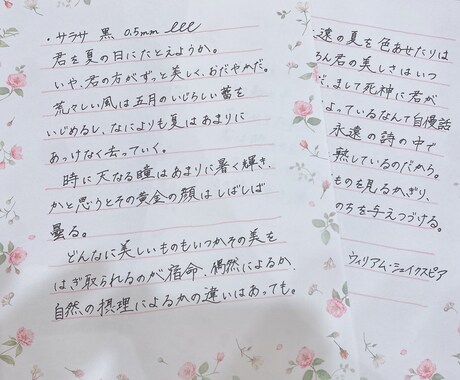 ・サラサ 黒 0.5mm
君を夏の日にたとえようか。
いや、君の方がずっと美しく、おだやかだ。
荒々しい風は五月のいじらしい蕾を
いじめるし、なによりも夏はあまりに
あっけなく去っていく。
時に天なる瞳はあまりに暑く輝き、
かと思うとその黄金の顔はしばしば
曇る。
どんなに美しいものもいつかその美を
はぎ取られるのが宿命、偶然によるか、
自然の摂理によるかの違いはあっても。
遠の夏を色あせたりは
ろん君の美しさはいつ
、まして死神に君が
よっているなんて自慢話
永遠の詩の中で
熟しているのだから。
ものを見るかぎり、
のちを与えつづける。
ウィリアム・シェイクスピア